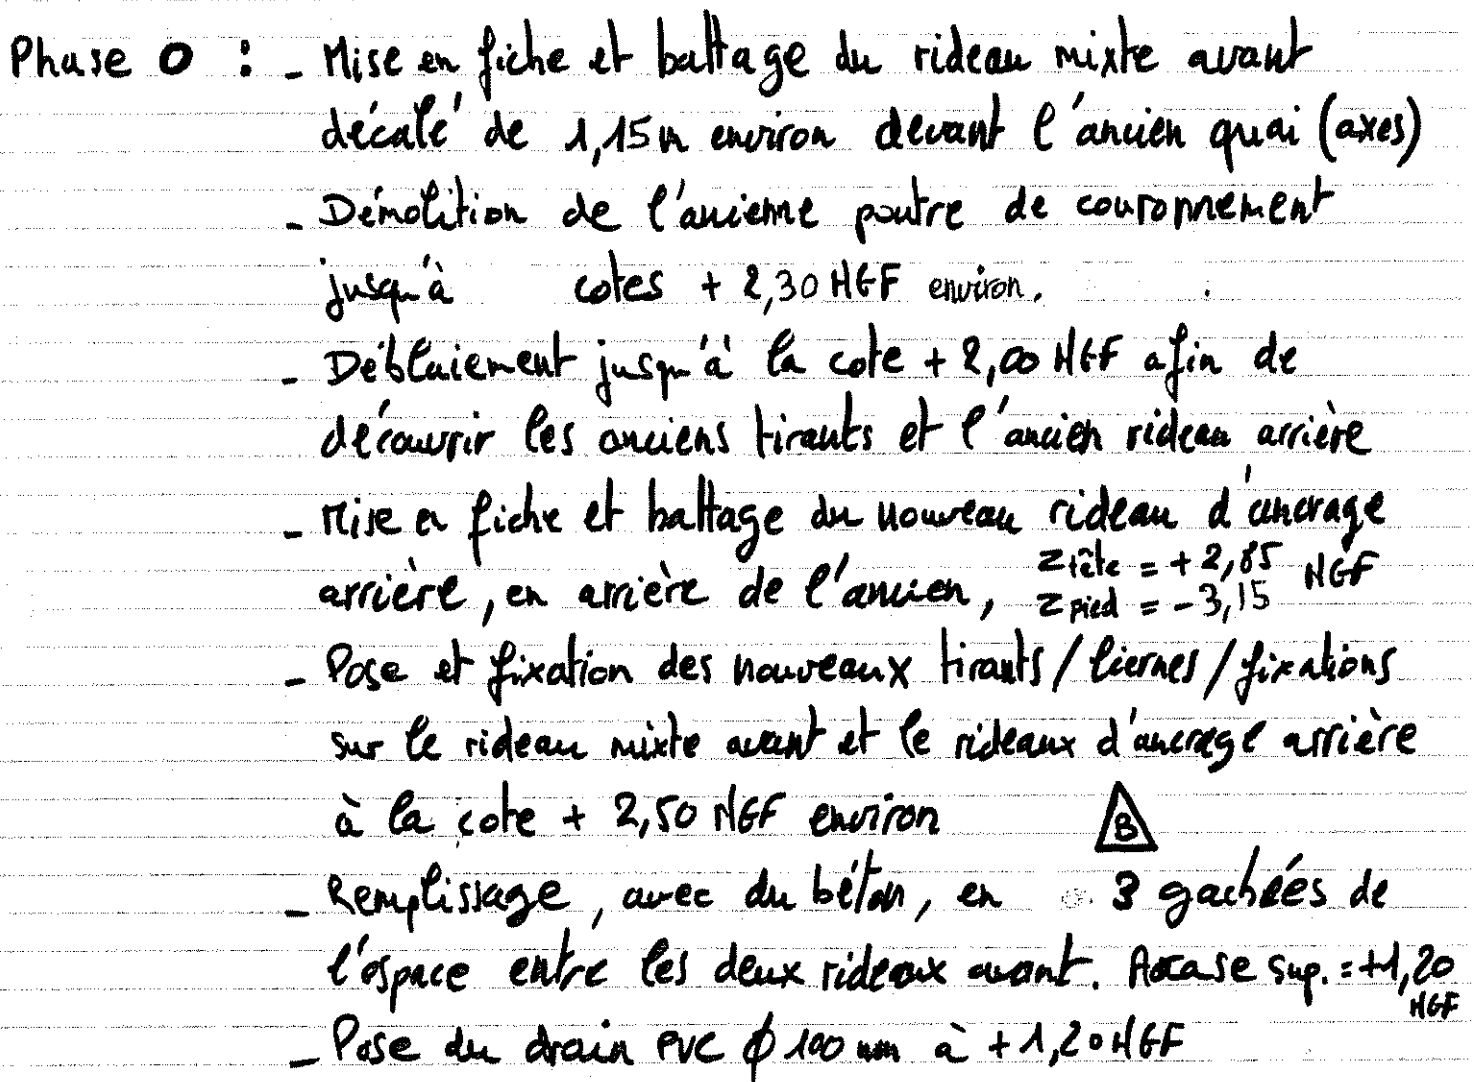 Phase 0 : - Mise en fiche et battage du rideau mixte avant
décalé de 1,15 m environ devant l'ancien quai (axes)
- Démolition de l'ancienne poutre de couronnement
jusqu'à cotes + 2,30 NGF environ.
- Déblaiement jusqu'à la cote + 2,00 NGF afin de
découvrir les anciens tirants et l'ancien rideau arrière
- Mise en fiche et battage du nouveau rideau d'ancrage
arrière, en arrière de l'ancien, z tête = + 2,85 NGF
z pied = - 3,15
- Pose et fixation des nouveaux tirants / liernes / fixations
sur le rideau mixte avant et le rideaux d'ancrage arrière
à la cote + 2,50 NGF environ
B
- Remplissage, avec du béton, en 3 gachées de
l'espace entre les deux rideaux avant. Arase sup. = +1,20
NGF
- Pose du drain PVC ϕ 100 mm à + 1,20 NGF